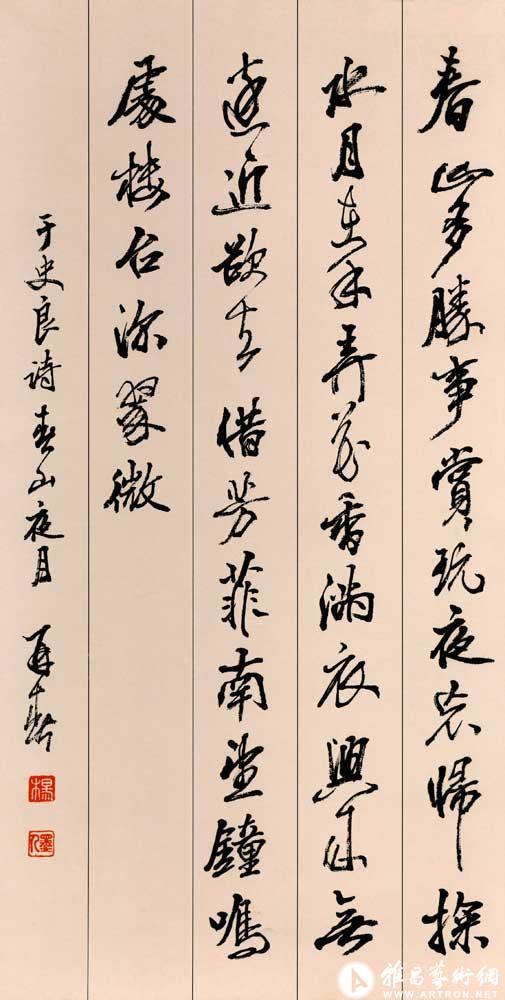 春山多勝事賞玩夜忘歸探
水月在手弄花香滿衣興來無
遠近欲去惜芳菲南望鐘鳴
處樓台深翠微
于史良詩春山夜月
雅昌藝術網
WWW.ARTRON.NET